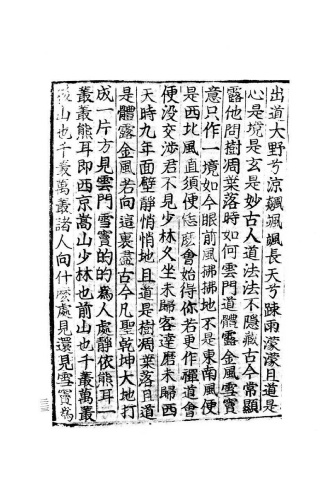 出道大野兮涼飆颯颯長天兮踈雨濛濛且道是
心是境是玄是妙古人道法法不隱藏古今常顯
露他問樹凋葉落時如何雲門道體露金風雪竇
意只作一境如今眼前風拂拂地不是東南風便
是西北風直須便恁麽會始得你若更作禪道會
便没交涉君不見少林久坐未歸客達磨未歸西
天時九年面壁靜悄悄地且道是樹凋葉落且道
是體露金風若向這裏盡古今凡聖乾坤大地打
成一片方見雲門雪竇的的為人處靜依熊耳一
叢叢熊耳即西京嵩山少林也前山也千叢萬叢
後山也千叢萬叢諸人向什麽處見還見雪竇為